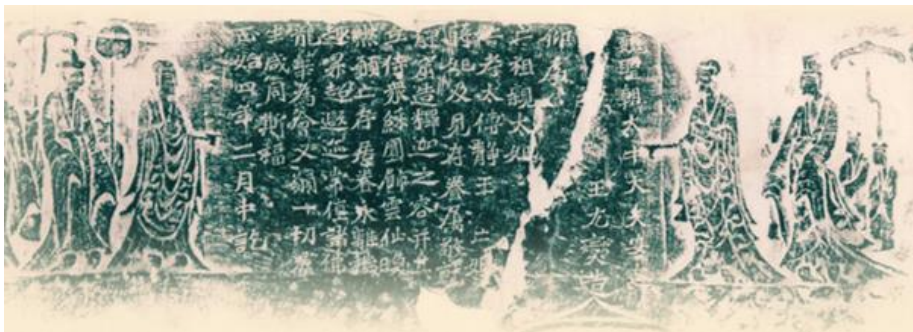 魏聖朝太中大夫安定
王元燮造
仰為
亡祖親太妃
亡考太傅靜王 亡妣
蔣妃及見存眷屬
造釋迦之容并其
立侍眾綵圓飾雲仙
然願亡存居眷永離穢
趣昇超遐迹常值諸佛
龍華為會又願一切眾
生咸同斯福
正始四年二月中訖